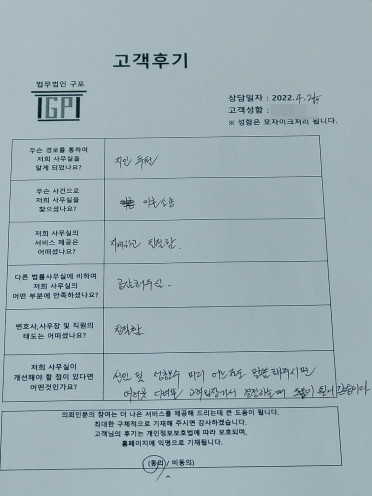 고객후기
법무법인 구포
IGPI
상담일자 : 2022. 4. 25
고객성함 :
※ 성함은 모자이크처리 됩니다.
무슨 경로를 통하여
저희 사무실을
알게 되었나요?
지인 추천
무슨 사건으로
저희 사무실을
찾으셨나요?
이혼소송
저희 사무실의
서비스 제공은
어떠셨나요?
자세하고 친절함.
다른 법률사무실에 비하여
저희 사무실의
어떤 부분에 만족하셨나요?
공감해주신.
변호사,사무장 및 직원의
태도는 어떠셨나요?
친절함.
저희 사무실이
개선해야 할 점이 있다면
어떤것인가요?
선임 및 성공보수 미리 어느정도 말씀해주시면
고객입장에서 결정하는데 도움이 될거같습니다
의뢰인분의 참여는 더 나은 서비스를 제공해 드리는데 큰 도움이 됩니다.
최대한 구체적으로 기재해 주시면 감사하겠습니다.
고객님의 후기는 개인정보보호법에 따라 보호되며,
홈페이지에 익명으로 기재됩니다.
(동의 / 비동의)